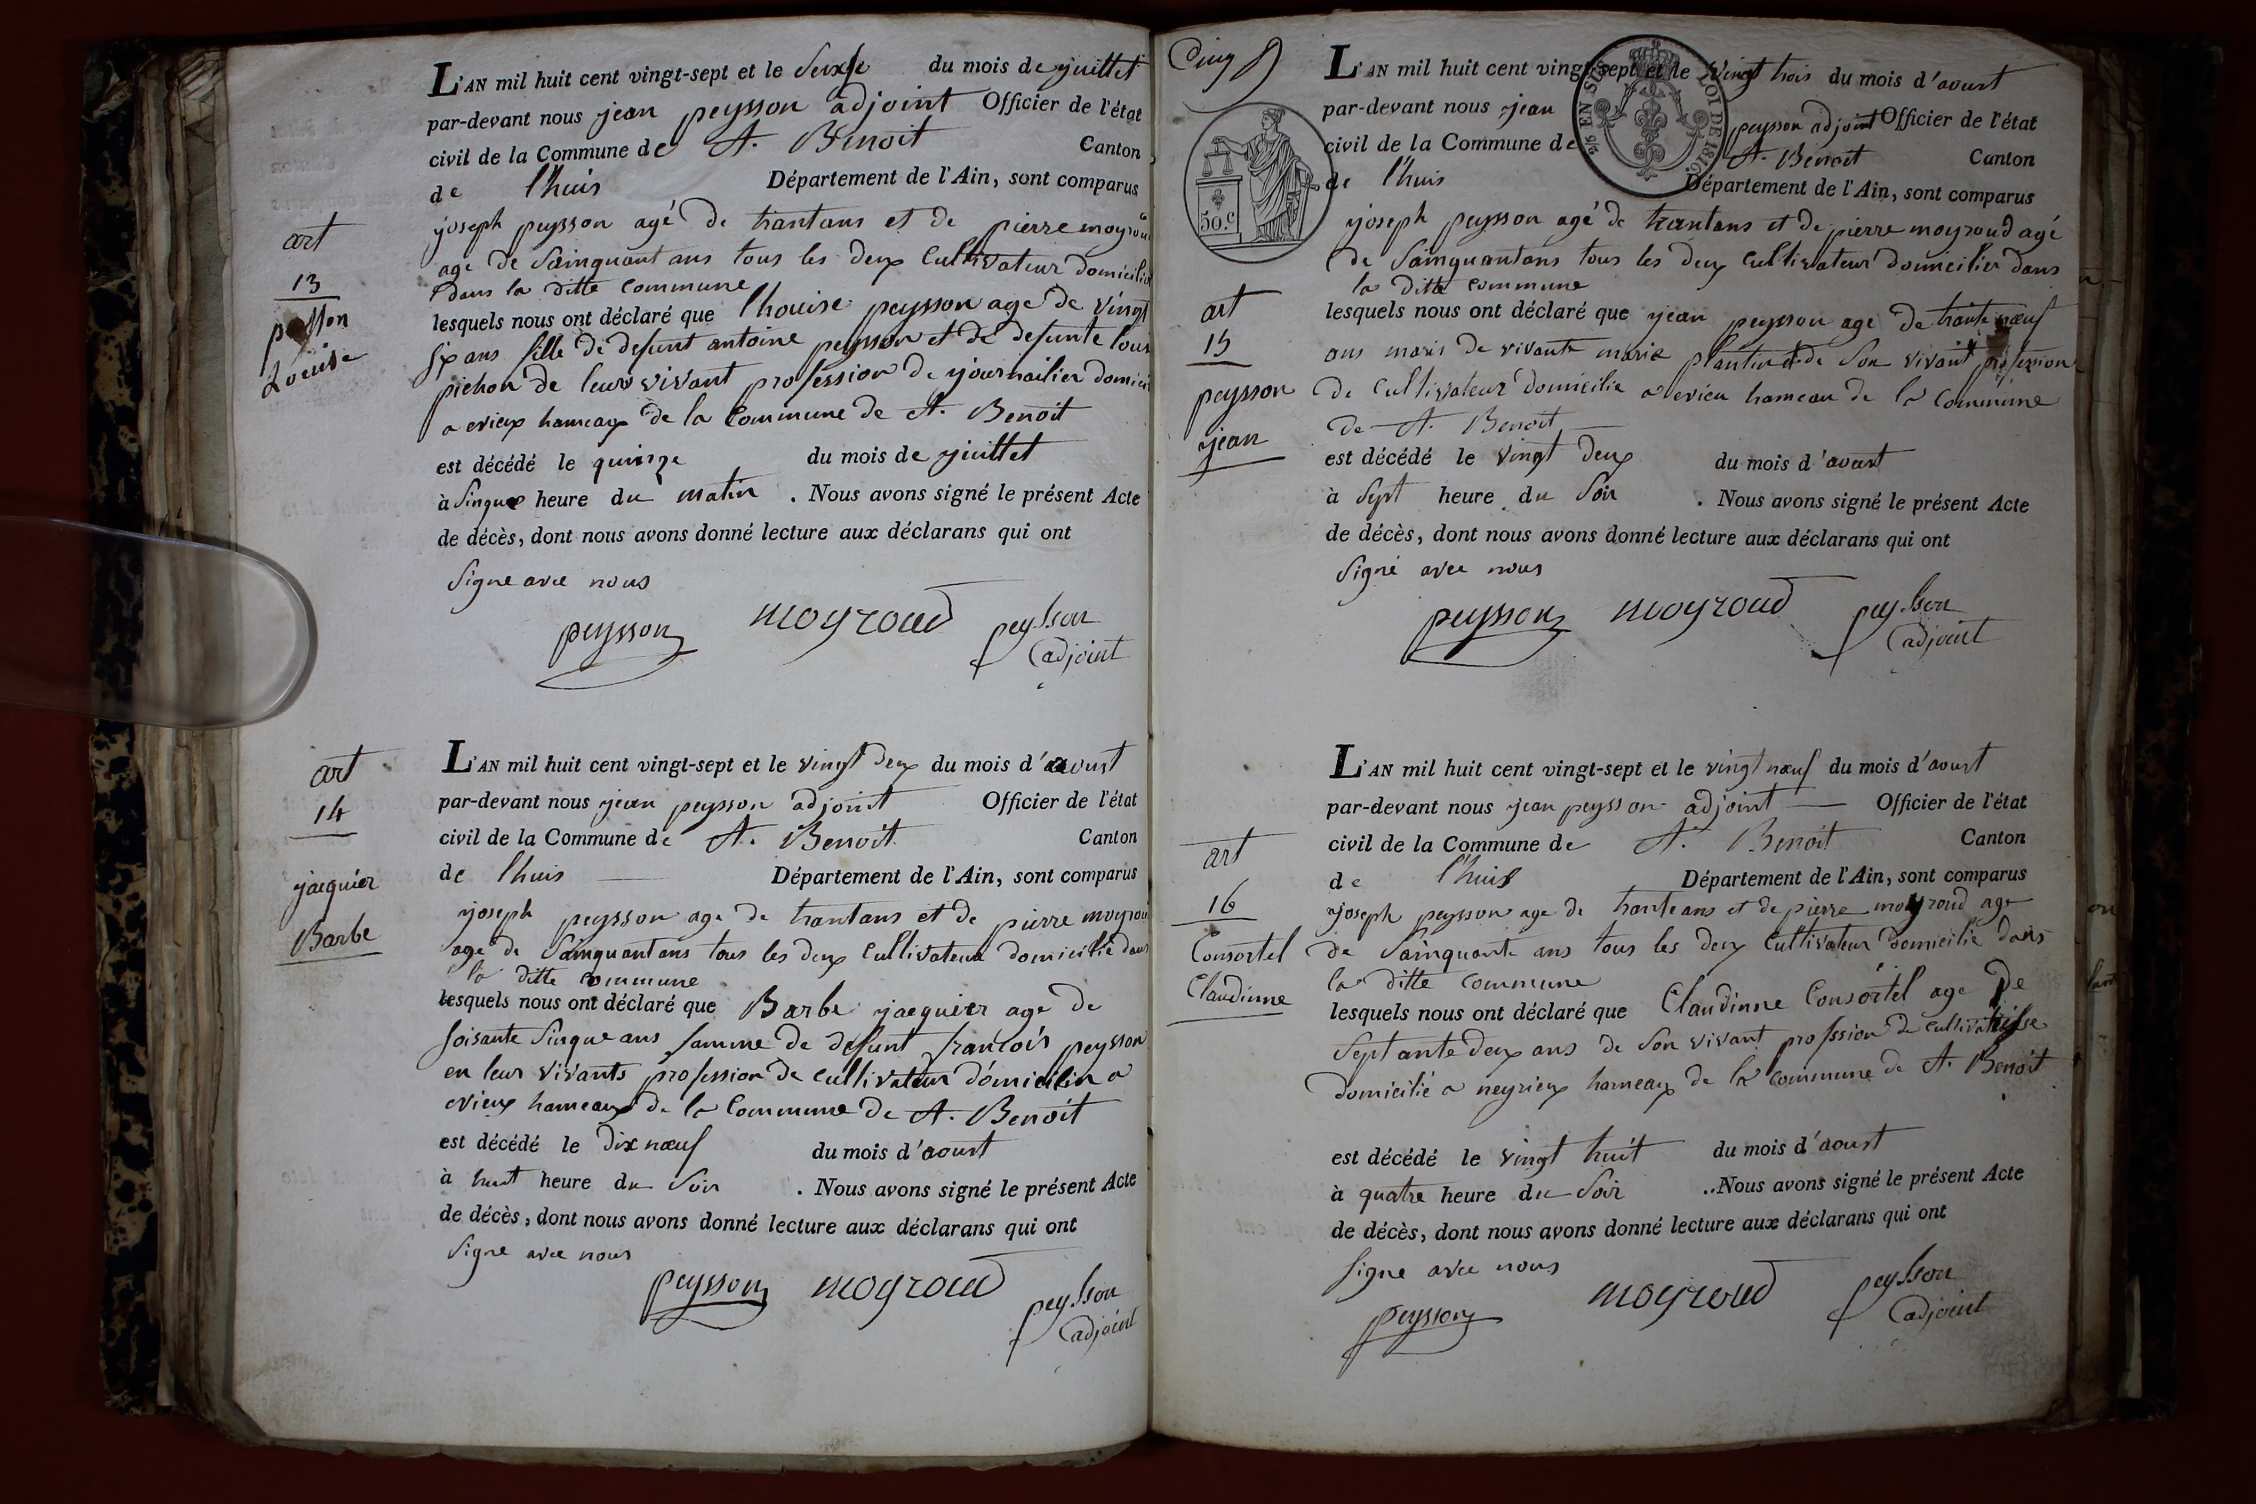 L'AN mil huit cent vingt-sept et le Seixse du mois de juillet
par-devant nous jean peysson adjoint Officier de l'état
civil de la Commune de St. Benoit Canton
de l'huis Département de l'Ain, sont comparus
joseph peysson agé de trantans et de pierre moyroud
age de Sainquant ans tous les deux Cultivateur domicilié
dans la ditte Commune
lesquels nous ont déclaré que l'houise peysson age de vingt
six ans fille de defunt antoine peysson et de defunte louise
pichon de leurs vivant profession de journailier domicilié
a evieux hameaux de la Commune de St. Benoit
est décédé le quinze du mois de juillet
à Sinque heure du matin . Nous avons signé le présent Acte
de décès, dont nous avons donné lecture aux déclarans qui ont
Signe avec nous
peysson moyroud peysson
adjoint
art
13
Louise
L'AN mil huit cent vingt-sept et le vingt deux du mois d'aoust
par-devant nous jean peysson adjoint Officier de l'état
civil de la Commune de St. Benoit Canton
de l'huis Département de l'Ain, sont comparus
joseph peysson age de trantans et de pierre moyroud
age de Sainquantans tous les deux Cultivateur domicilié dans
la ditte commune
lesquels nous ont déclaré que Barbe jacquier age de
soisante Sinque ans famme de defunt francois peysson
en leur vivants profession de cultivateur domicilier a
evieux hameaux de la Commune de St. Benoit
est décédé le Dix nœuf du mois d'aoust
à huit heure du Soir . Nous avons signé le présent Acte
de décès, dont nous avons donné lecture aux déclarans qui ont
Signe avec nous
peysson moyroud peysson
adjoint
art
14
jacquier
Barbe
Cinq
26 EN SUS LOI DE 1816
50.C
L'AN mil huit cent vingt-sept et le Vingt trois du mois d'aoust
par-devant nous jean peysson adjoint Officier de l'état
civil de la Commune de St. Benoit Canton
de l'huis Département de l'Ain, sont comparus
joseph peysson agé de trantans et de pierre moyroud agé
de Sainquantans tous les deux Cultivateur domicilier dans
la ditte commune
lesquels nous ont déclaré que jean peysson age de trante nœuf
ans maris de vivante marie plantin de Son vivant profession
de Cultivateur domicilie a evieu hameau de la Commune
de St. Benoit
est décédé le vingt deux du mois d'aoust
à Sept heure du Soir . Nous avons signé le présent Acte
de décès, dont nous avons donné lecture aux déclarans qui ont
Signé avec nous
peysson moyroud peysson
adjoint
art
15
peysson
jean
L'AN mil huit cent vingt-sept et le vingt nœuf du mois d'aoust
par-devant nous jean peysson adjoint Officier de l'état
civil de la Commune de St. Benoit Canton
de l'huis Département de l'Ain, sont comparus
joseph peysson age de trante ans et de pierre moyroud age
de Sainquante ans tous les deux Cultivateur domicilie dans
la ditte commune
lesquels nous ont déclaré que Claudinne Consortel age de
Septante deux ans de Son vivant profession de cultivatrisse
domicilié a neyrieux hameaux de la commune de St. Benoit
est décédé le vingt huit du mois d'aoust
à quatre heure du Soir . Nous avons signé le présent Acte
de décès, dont nous avons donné lecture aux déclarans qui ont
Signe avec nous
peysson moyroud peysson
adjoint
art
16
Consortel
Claudinne